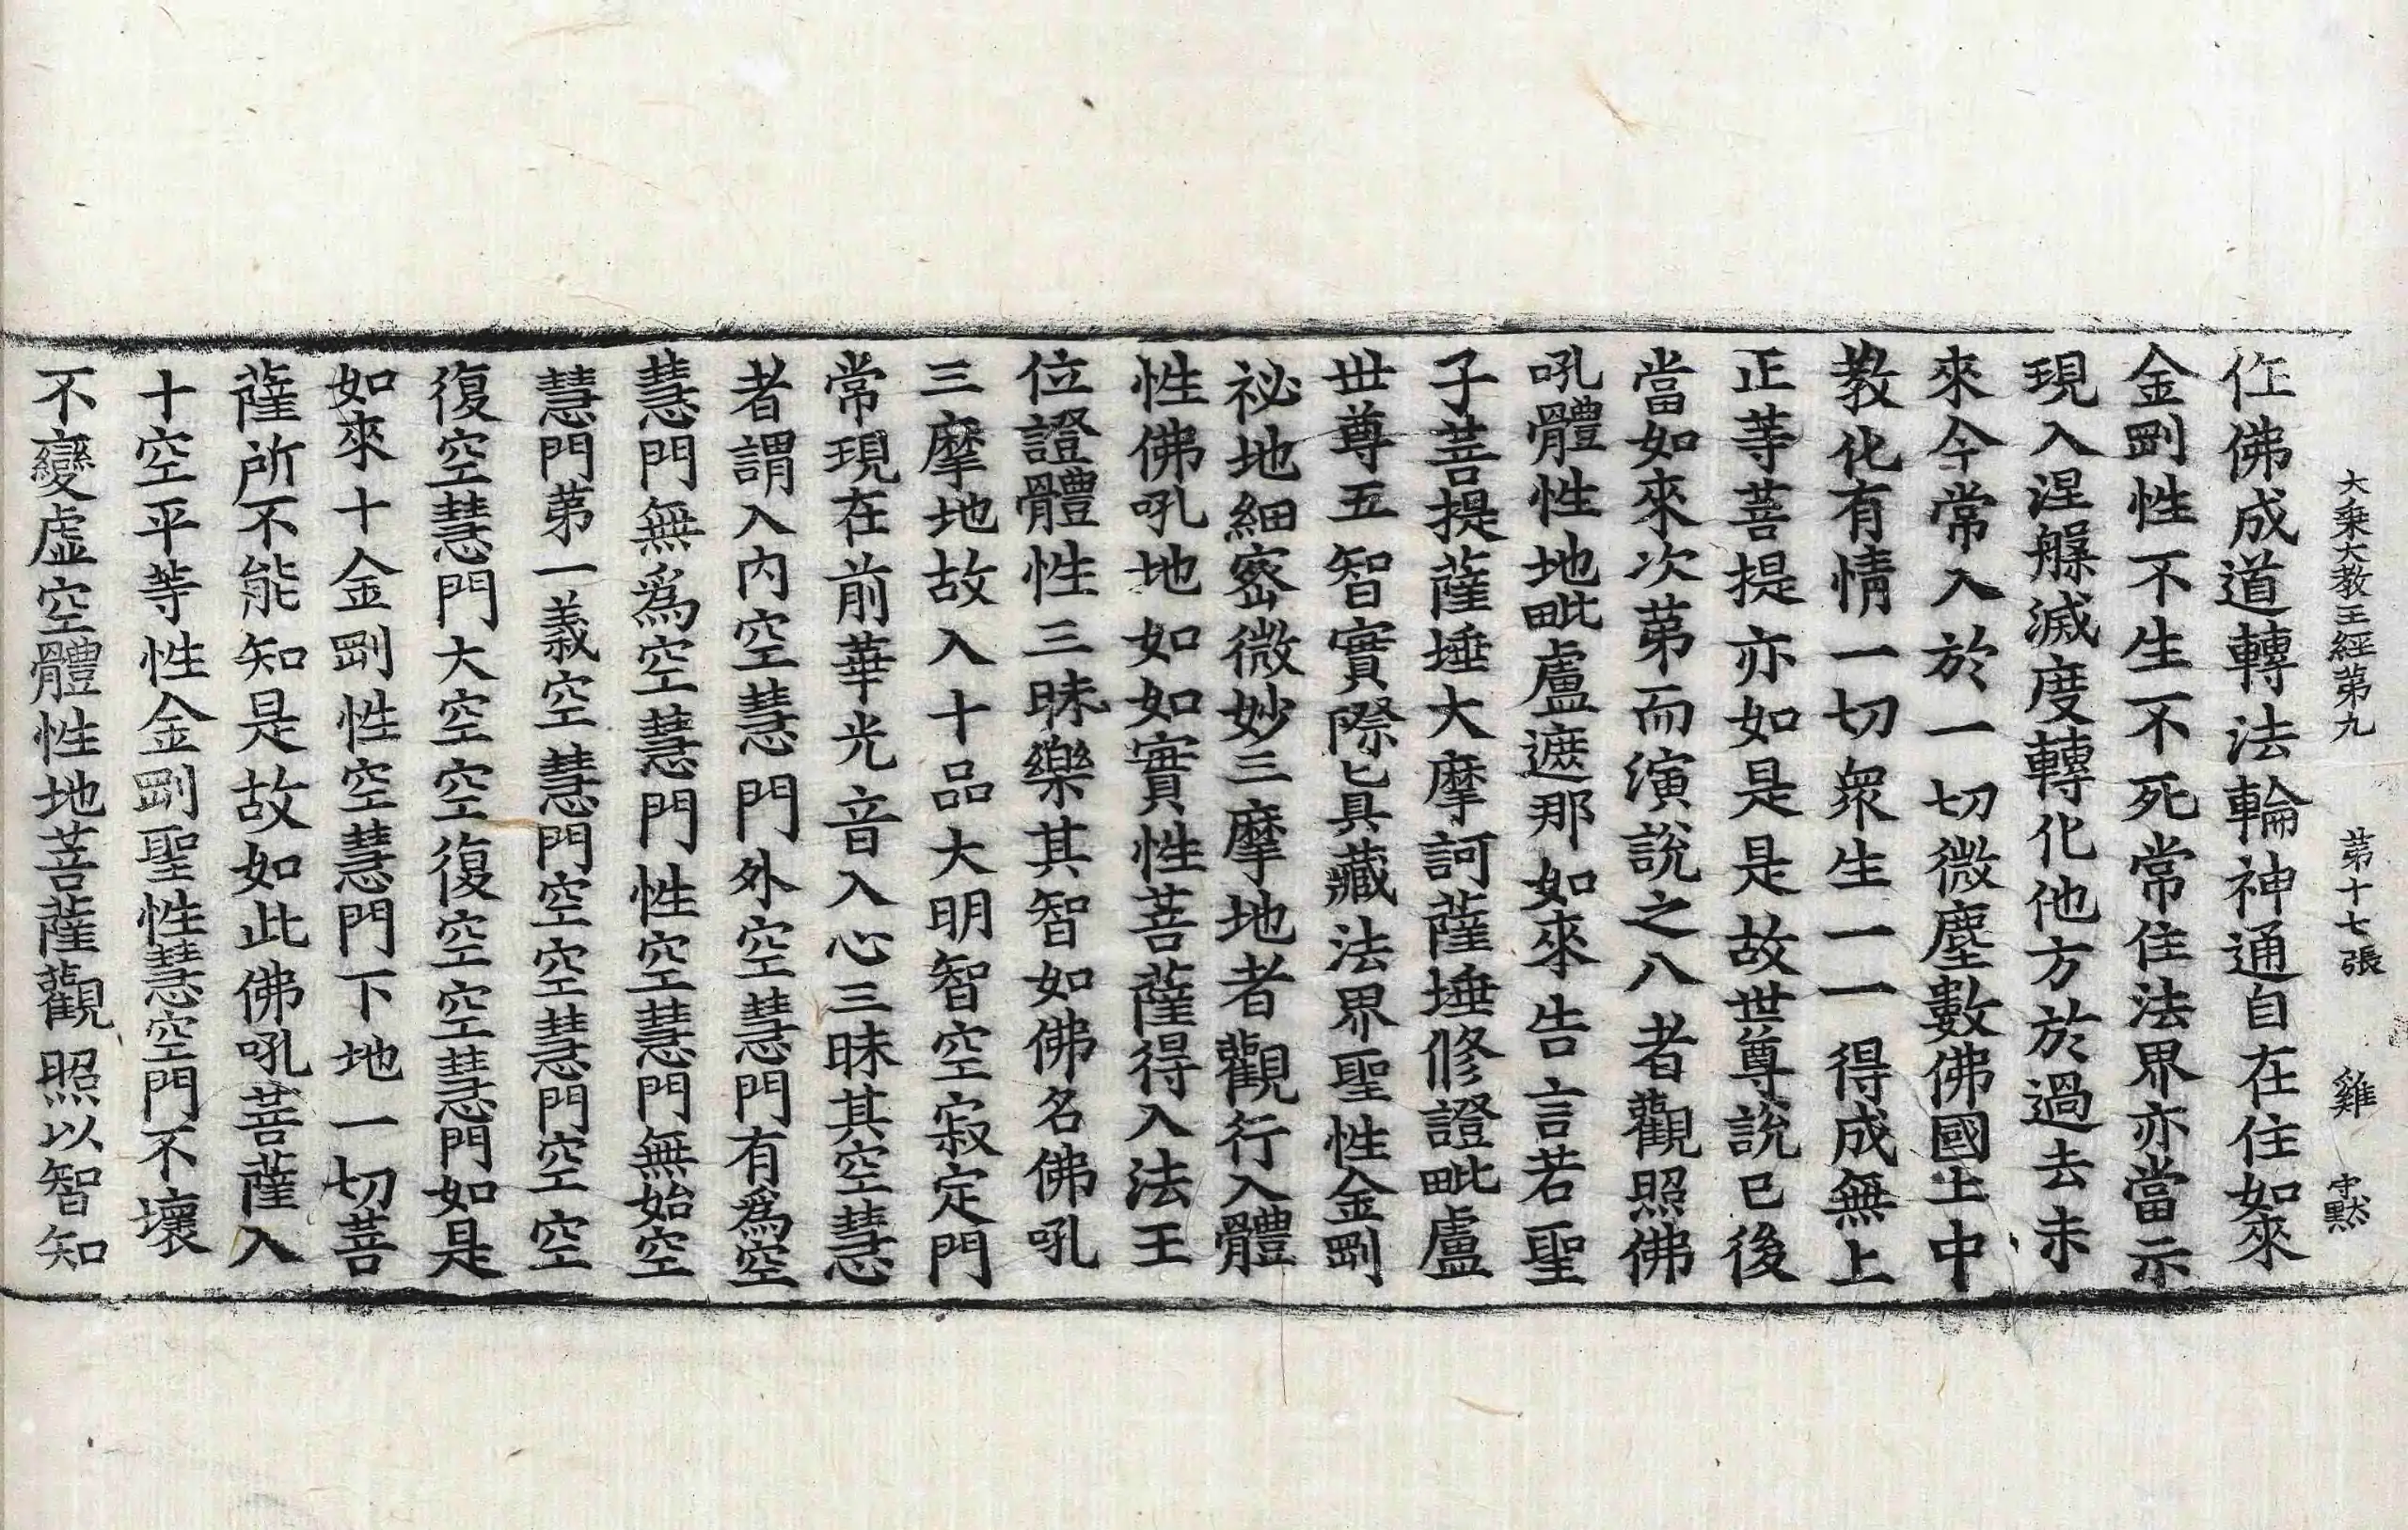 大乗大教王經第九 第十七張 雞 中黙
作佛成道轉法輪神通自在住如來
金剛性不生不死常住法界亦當示
現入涅槃滅度轉化他方於過去未
來今常入於一切微塵數佛國土中
教化有情一切衆生一一得成無上
正等菩提亦如是是故世尊說已後
當如來次第而演說之八者觀照佛
吼體性地毗盧遮那如來告言若聖
子菩提薩埵大摩訶薩埵修證毗盧
世尊五智實際匕具藏法界聖性金剛
祕地細密微妙三摩地者觀行入體
性佛吼地如如實性菩薩得入法王
位證體性三昧樂其智如佛名佛吼
三摩地故入十品大明智空寂定門
常現在前華光音入心三昧其空慧
者謂入內空慧門外空慧門有爲空
慧門無爲空慧門性空慧門無始空
慧門第一義空慧門空空慧門空空
復空慧門大空空復空空慧門如是
如來十金剛性空慧門下地一切菩
薩所不能知是故如此佛吼菩薩入
十空平等性金剛聖性慧空門不壞
不變虛空體性地菩薩觀照以智知